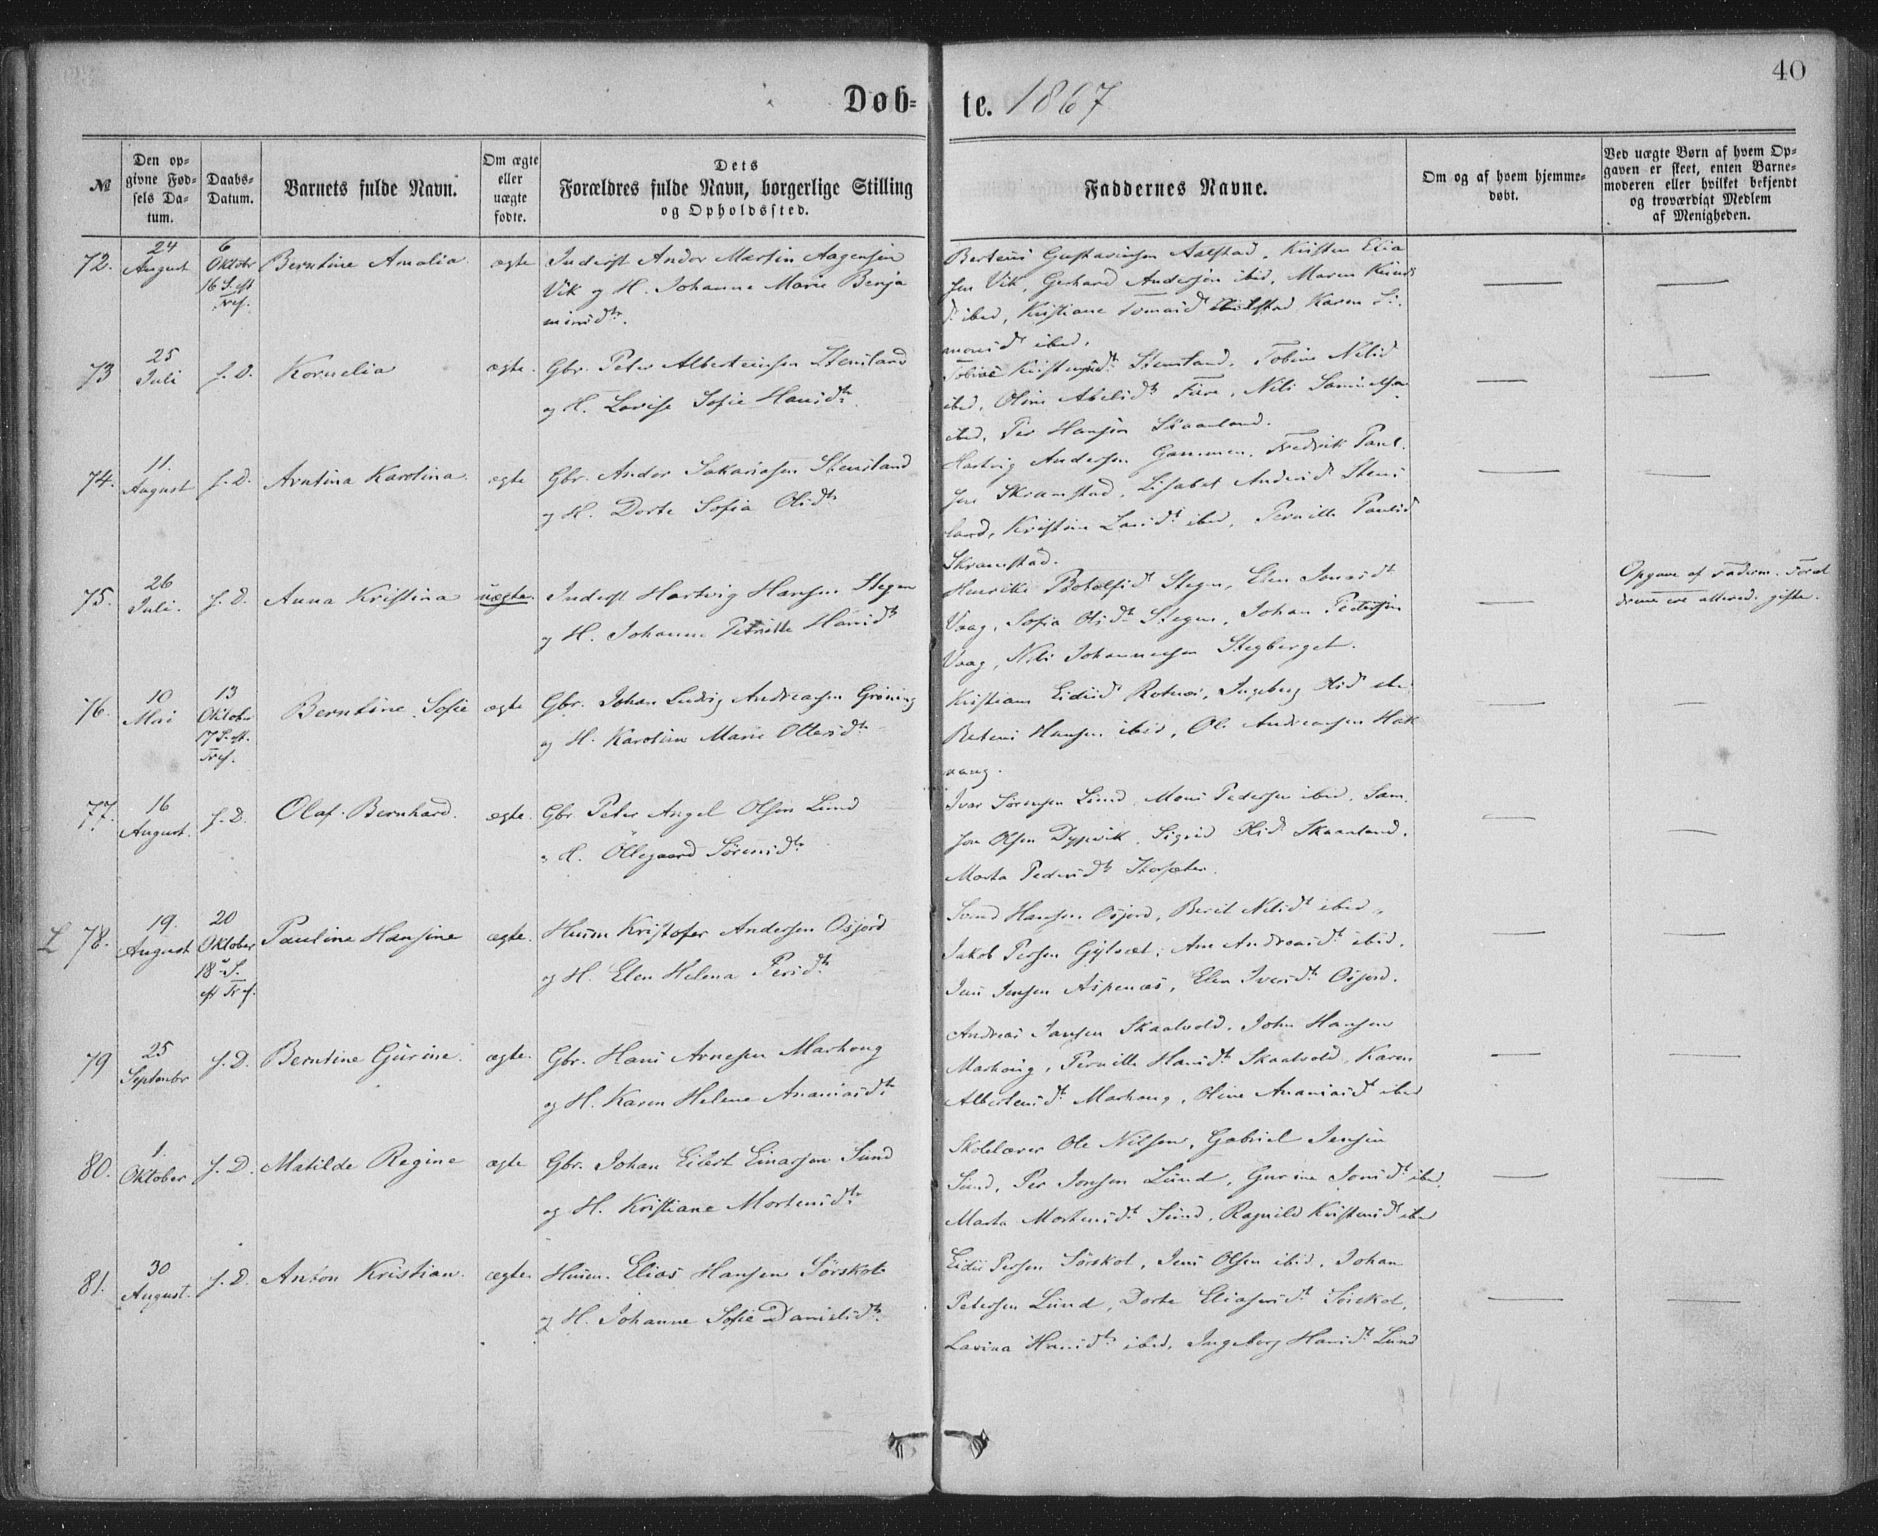 40
Døb=te. 1867
№
Den op=
givne Fød=
sels Da=
tum.
Daabs=
Datum.
Barnets fulde Navn.
Om ægte
eller
uægte
fødte.
Dets
Forældres fulde Navn, borgerlige Stilling
og Opholdssted.
Faddernes Navne.
Om og af hvem hjemme=
døbt.
Ved uægte Børn af hvem Op=
gaven er skeet, enten Barne=
moderen eller hvilket bekjendt
og troværdigt Medlem
af Menigheden.
72.
24
August
6
Oktobr
16 S. eft
Tref.
Berntine Amalia
ægte
Inderst Andor Martin Aagensen
Vik og H. Johanne Marie Benja
minsdtr.
Gustavinsen Aalstad, Kristen Elia
sen Vik, Gerhard Andersen ibid, Maren
ibid, Kristiane Karen Si
monsdt ibid.
73
25
Juli
s. D.
Kornelia
ægte.
Gbr. Peter Albertinsen Stensland
og H. Lovise Sofie Hansdtr.
Stensland, Tobine Nilsd
ibid, Oline Abelsdtr Nils Samuelsen
ibid, Per Hansen Skaanland.
74.
11.
August
s. D.
Arntina Karolina
ægte
Gbr. Andor Sakariasen Stensland
og H. Dorte Sofia Olsdtr
Hartvig Andersen Gammen, Fredrik Paul
sen Skramstad, Lisabet Andersd Stens
land, Kristine Larsdt ibid, Pernille Paulsd
Skramstad.
75.
26
Juli.
s. D.
Anna Kristina
uægte
Inderst Hartvig Hansen Stegen
og H. Johanne Petrikke Hansdtr
Henrikke Botolfsdt Stegen, Elen Jonasdt
Vaag, Sofia Olsdtr Stegen, Johan Pedersen
Vaag, Nils Johannessen Stegberget.
Opgave af Faderen. Foræl
drene ere allered. gifte.
76.
10
Mai
13
Oktober
17 S. eft.
Tref.
Berntine Sofie
ægte
Gbr. Johan Ludvig Andreassen Grøning
og H. Karoline Marie Ottersdtr
Kristiane Ingeborg Olsd
Hansen ibid, Ole Andreassen Hak
vaag.
77.
16
August.
s. D.
Olaf Bernhard.
ægte.
Gbr. Peter Angel Olsen Lund
og H. Ollegaard Sørensdtr
Ivar Sørensen Lund, Mons Pedersen ibid, Sam
son Olsen Dypvik, Sigrid Olsd Skaanland,
Marta Pedersdtr Storsæter.
L 78.
19.
August
20
Oktober
18de S.
eft Tref.
Paulina Hansine
ægte.
Husm Kristofer Andersen Osjord
og H. Elen Helena Persdtr
Svend Hansen Osjord, Berit Nilsdt ibid,
Jakob Persen Gyltvet, Ane Andreasdt ibid,
Jens Jensen Aspenæs, Elen Iversdtr Osjord.
79
25
Septembr
s. D.
Berntine Gurine.
ægte.
Gbr. Hans Arnesen Marhoug
og H. Karen Helene Ananiasdtr
Andreas Jansen Skaalvold, John Hansen
Marhoug, Pernille Hansdt Skaalvold, Karen
Albertensdt Marhoug, Oline Ananiasdt ibid
80.
1.
Oktober
s. D.
Matilde Regine
ægte
Gbr. Johan Eilert Einarsen Sund
og H. Kristiane Mortensdtr
Skolelærer Ole Nilsen, Gabriel Jensen
Sund, Per Jonsen Lund, Gurine Jonsdt ibid,
Marta Mortensdt Sund, Ragnild Kristensdt ibid
81.
30
August.
s. D.
Anton Kristian.
ægte
Husm. Elias Hansen Sørskot
og H. Johanne Sofie Danielsdtr
Persen Sørskot, Jens Olsen ibid, Johan
Petersen Lund, Dorte Eliasensdt Sørskot,
Lavina Hansdtr ibid, Ingeborg Hansdt Lund